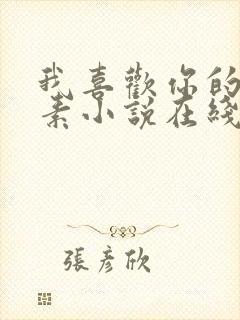 我喜歡你的
素小説在綫
張彥欣